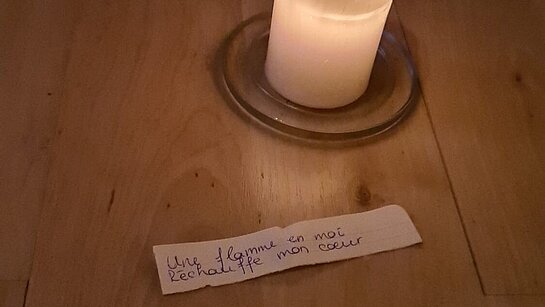 Une flamme en moi
Réchauffe mon cœur